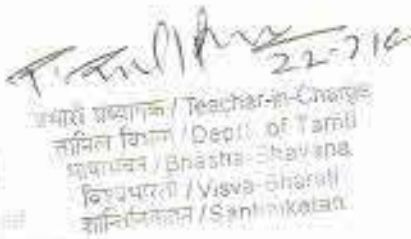 22-7-10
प्रभारी अध्यापक / Teacher-in-Charge
तमिल विभाग / Deptt. of Tamil
भाषाभवन / Bhasha-Bhavana
विश्वभारती / Visva-Bharati
शान्तिनिकेतन / Santiniketan